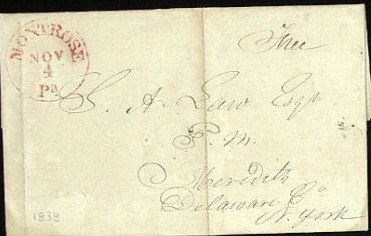 MONTROSE
NOV
4
Pa
Free
S. A. Law Esqr
P. M.
Meredith
Delaware Co
N. York
1838